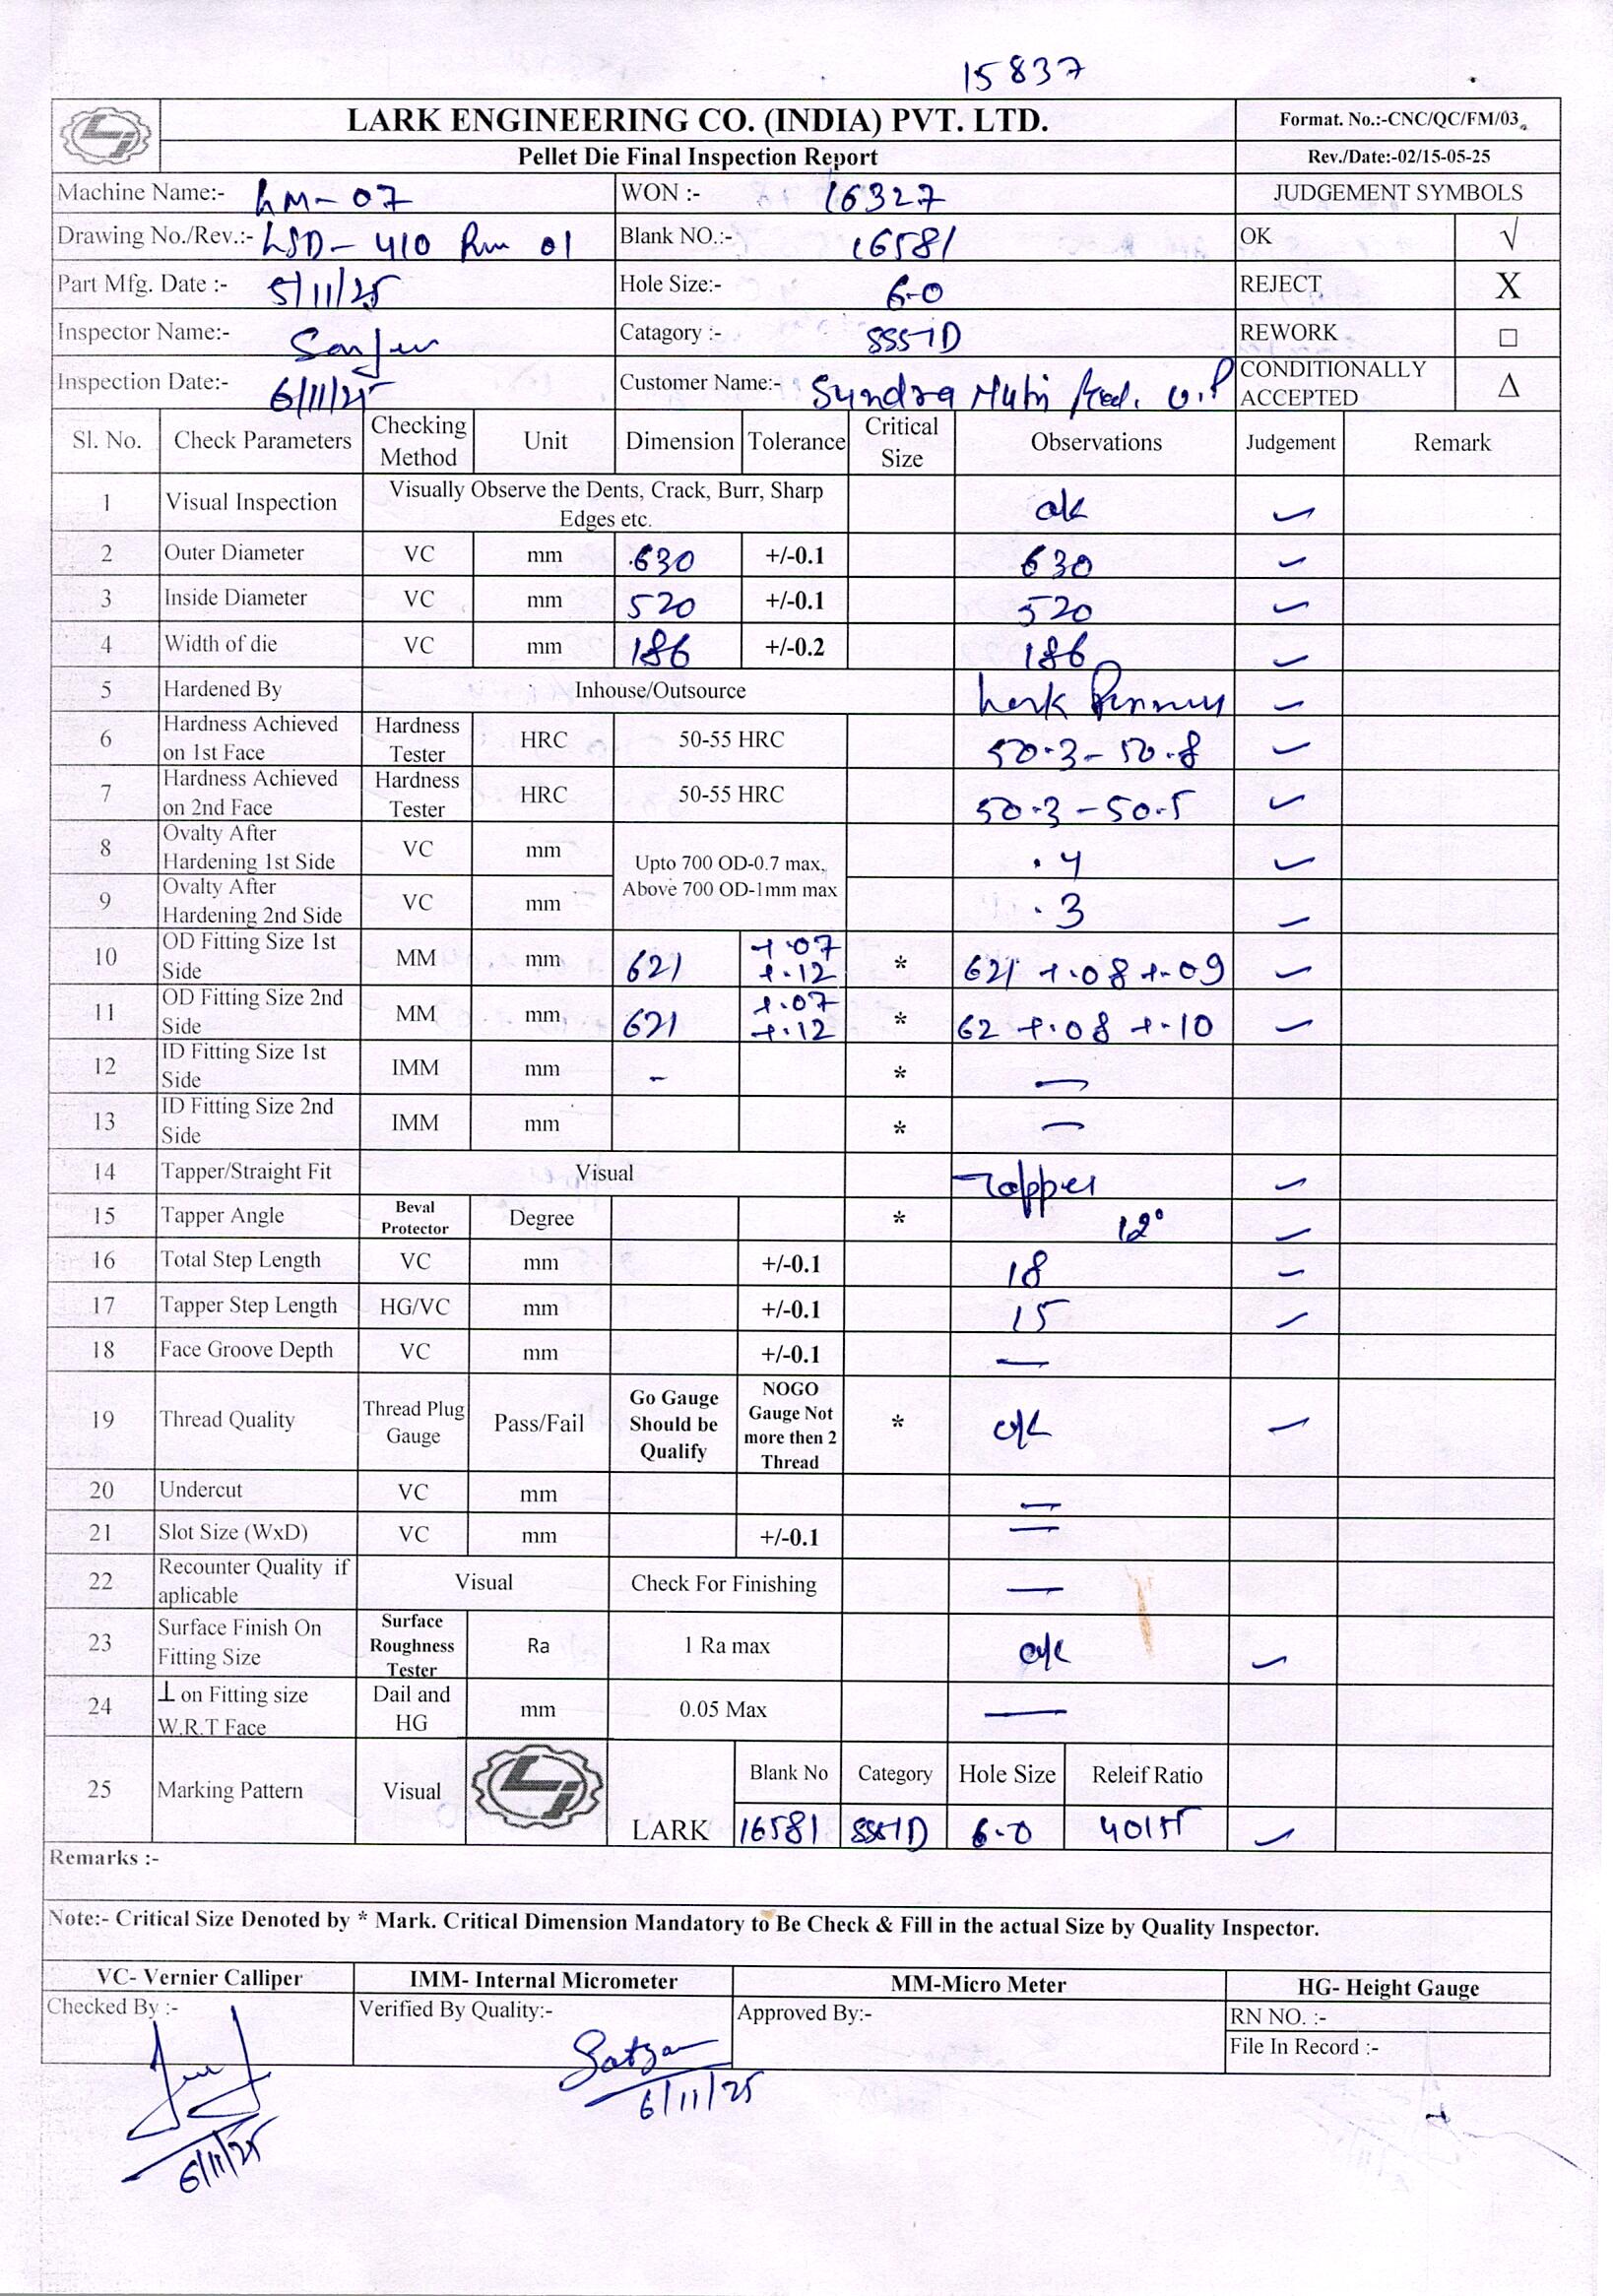 15837
LARK ENGINEERING CO. (INDIA) PVT. LTD. Format. No.:-CNC/QC/FM/03
Pellet Die Final Inspection Report Rev./Date:-02/15-05-25
Machine Name:- LM-07 WON :- 16327 JUDGEMENT SYMBOLS
Drawing No./Rev.:- LSD-410 01 Blank NO.:- 16581 OK √
Part Mfg. Date :- 5/11/25 Hole Size:- 6.0 REJECT X
Inspector Name:- Catagory :- REWORK □
Inspection Date:- 6/11/25 Customer Name:- Sundra U.P CONDITIONALLY ACCEPTED Δ
Sl. No. Check Parameters Checking Method Unit Dimension Tolerance Critical Size Observations Judgement Remark
1 Visual Inspection Visually Observe the Dents, Crack, Burr, Sharp Edges etc. ok ✓
2 Outer Diameter VC mm 630 +/-0.1 630 ✓
3 Inside Diameter VC mm 520 +/-0.1 520 ✓
4 Width of die VC mm 186 +/-0.2 186 ✓
5 Hardened By Inhouse/Outsource Lark ✓
6 Hardness Achieved on 1st Face Hardness Tester HRC 50-55 HRC 50.3-50.8 ✓
7 Hardness Achieved on 2nd Face Hardness Tester HRC 50-55 HRC 50.3-50.5 ✓
8 Ovalty After Hardening 1st Side VC mm Upto 700 OD-0.7 max, Above 700 OD-1mm max .4 ✓
9 Ovalty After Hardening 2nd Side VC mm .3 ✓
10 OD Fitting Size 1st Side MM mm 621 +.07 +.12 * 621 +.08 +.09 ✓
11 OD Fitting Size 2nd Side MM mm 621 +.07 +.12 * 62 +.08 +.10 ✓
12 ID Fitting Size 1st Side IMM mm - * —
13 ID Fitting Size 2nd Side IMM mm * —
14 Tapper/Straight Fit Visual Tapper ✓
15 Tapper Angle Beval Protector Degree * 12° ✓
16 Total Step Length VC mm +/-0.1 18 ✓
17 Tapper Step Length HG/VC mm +/-0.1 15 ✓
18 Face Groove Depth VC mm +/-0.1 —
19 Thread Quality Thread Plug Gauge Pass/Fail Go Gauge Should be Qualify NOGO Gauge Not more then 2 Thread * ok ✓
20 Undercut VC mm —
21 Slot Size (WxD) VC mm +/-0.1 —
22 Recounter Quality if aplicable Visual Check For Finishing —
23 Surface Finish On Fitting Size Surface Roughness Tester Ra 1 Ra max ok ✓
24 ⊥ on Fitting size W.R.T Face Dail and HG mm 0.05 Max —
25 Marking Pattern Visual LARK Blank No Category Hole Size Releif Ratio
16581 6.0 ✓
Remarks :-
Note:- Critical Size Denoted by * Mark. Critical Dimension Mandatory to Be Check & Fill in the actual Size by Quality Inspector.
VC- Vernier Calliper IMM- Internal Micrometer MM-Micro Meter HG- Height Gauge
Checked By :- Verified By Quality:- Approved By:- RN NO. :-
File In Record :-
6/11/25
6/11/25